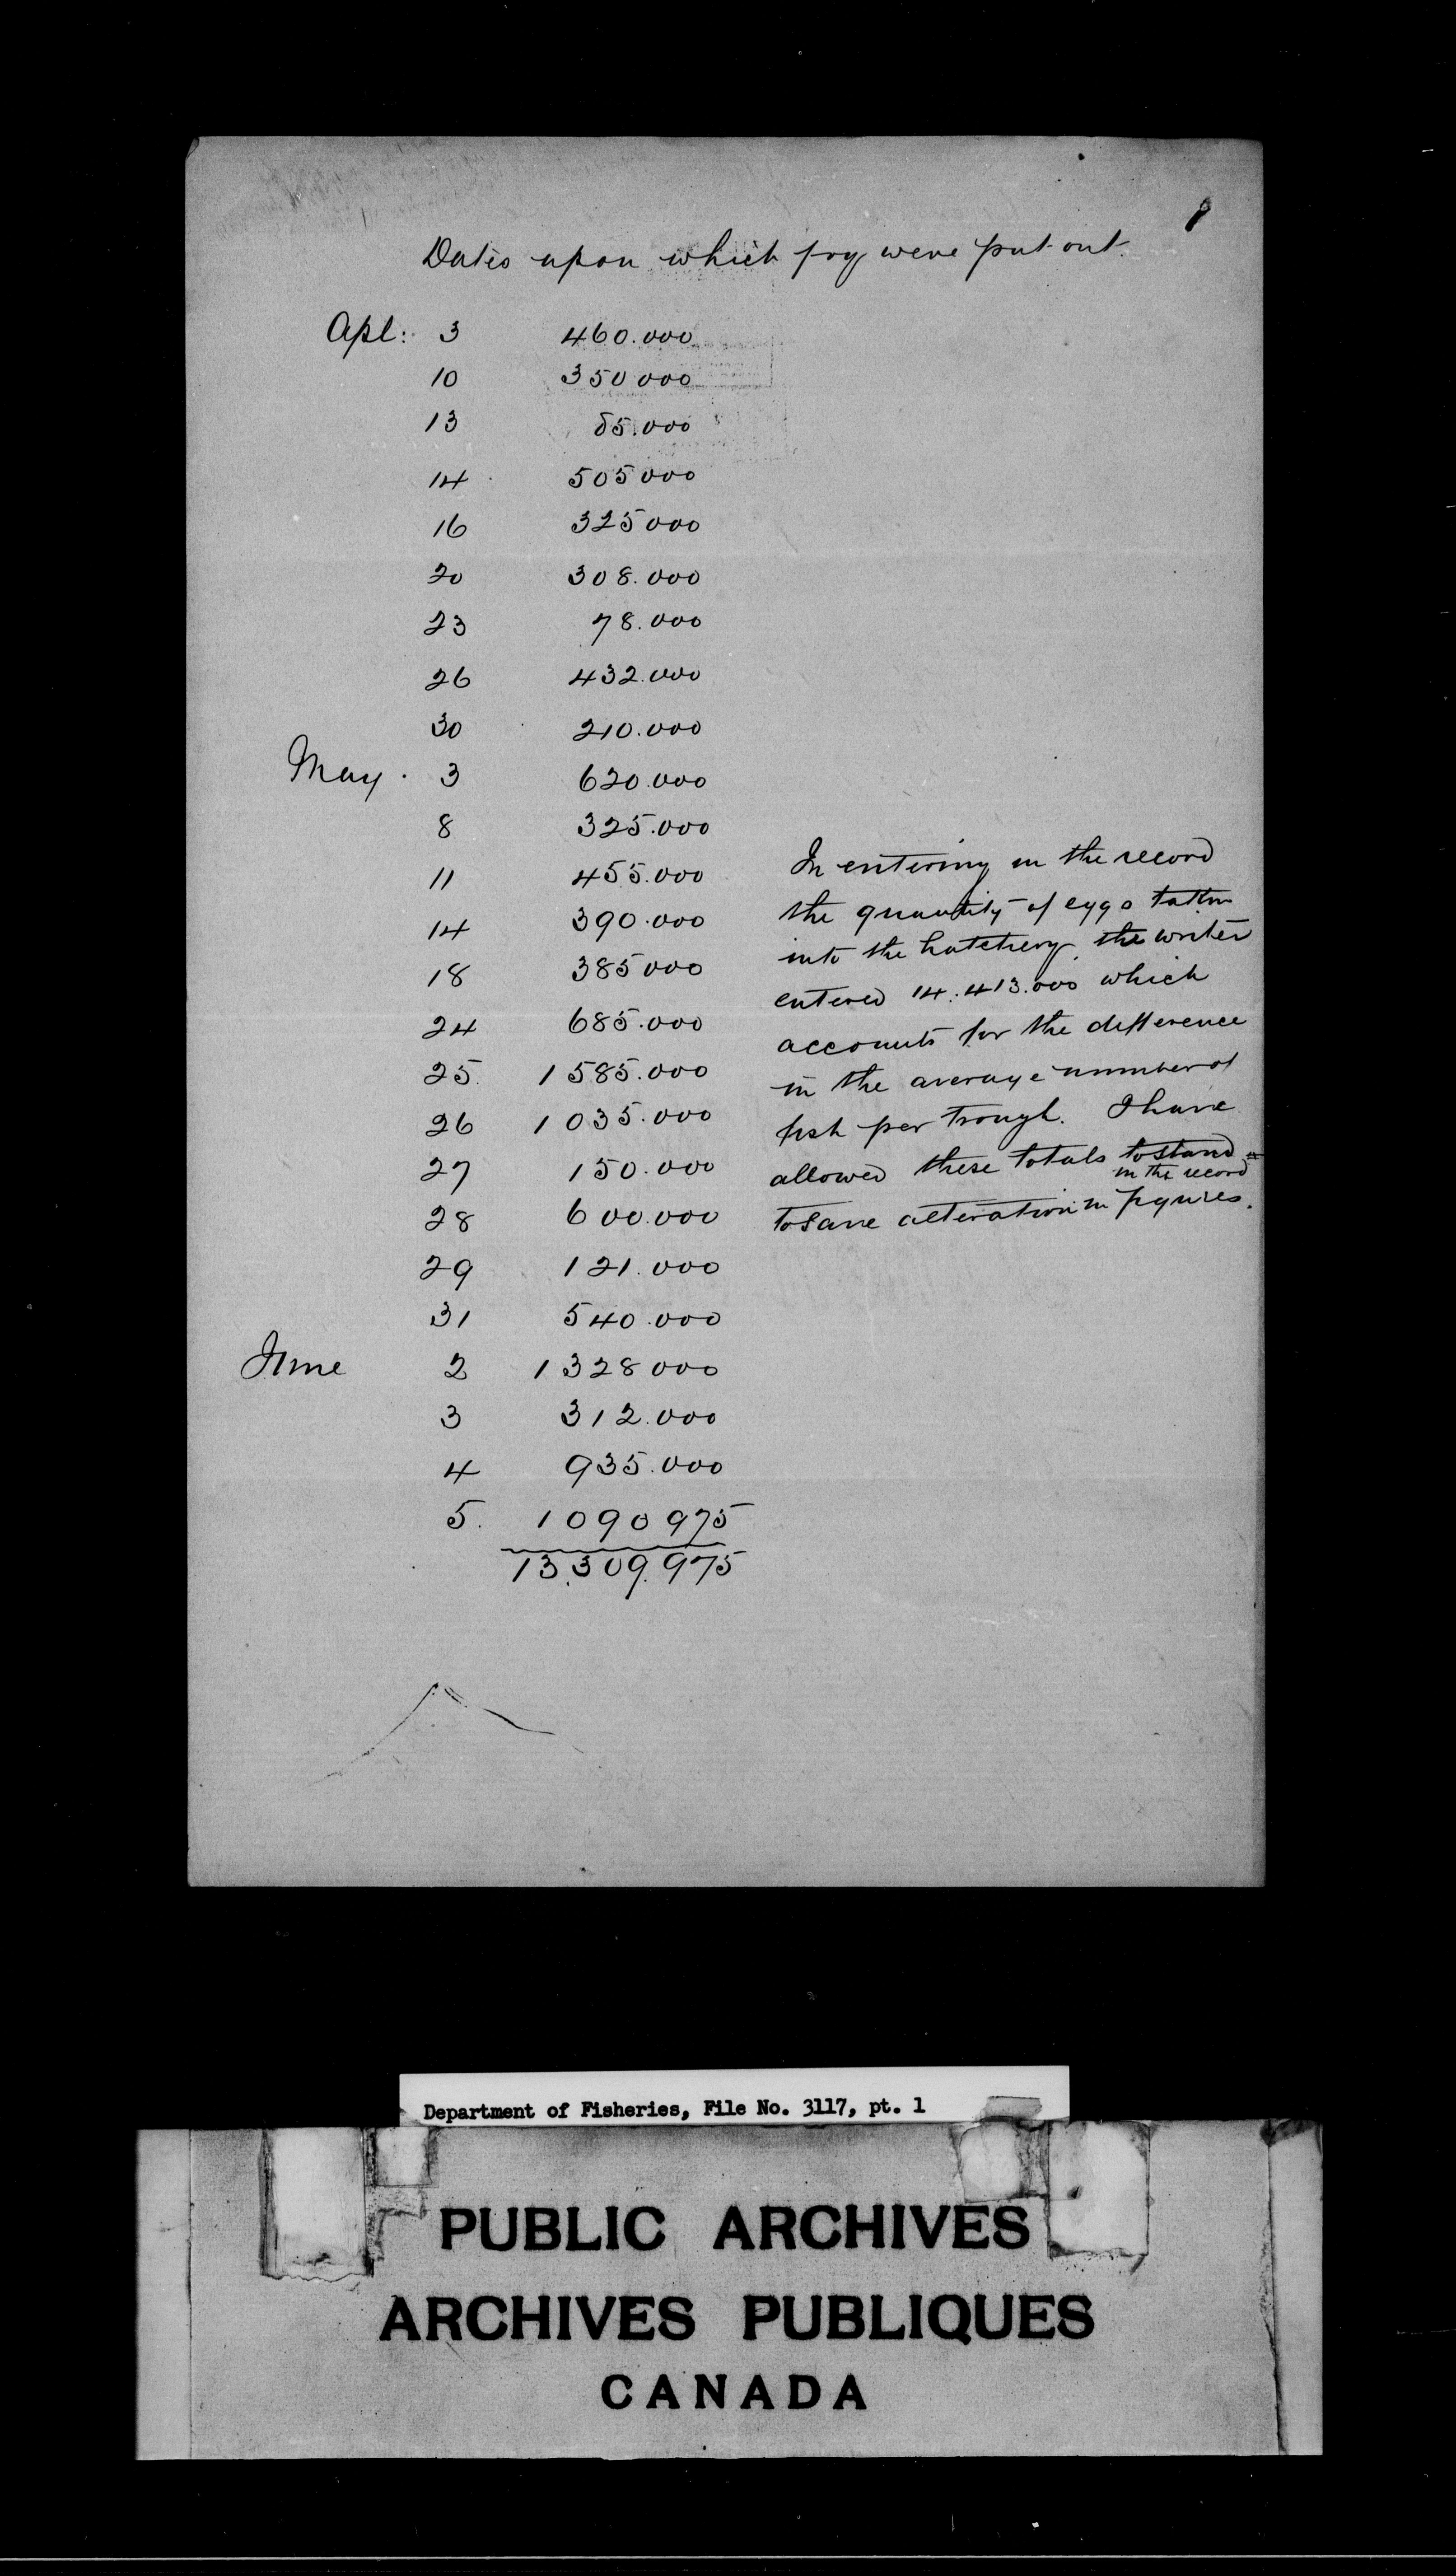 Dates upon which fry were put out.
Apl: 3 460.000
10 350 000
13 85.000
14 505 000
16 325 000
20 308.000
23 78.000
26 432.000
30 210.000
May. 3 620.000
8 325.000
11 455.000
14 390.000
18 385 000
24 685.000
25. 1 585.000
26 1 035.000
27 150.000
28 600.000
29 121.000
31 540.000
June 2 1 328 000
3 312.000
4 935.000
5. 1 090 975
13.309.975
In entering in the record
the quantity of eggs taken
into the hatchery the writer
entered 14.413.000 which
accounts for the difference
in the average number of
fish per trough. I have
allowed these totals to stand
in the record
to save alteration in figures.
Department of Fisheries, File No. 3117, pt. 1
PUBLIC ARCHIVES
ARCHIVES PUBLIQUES
CANADA